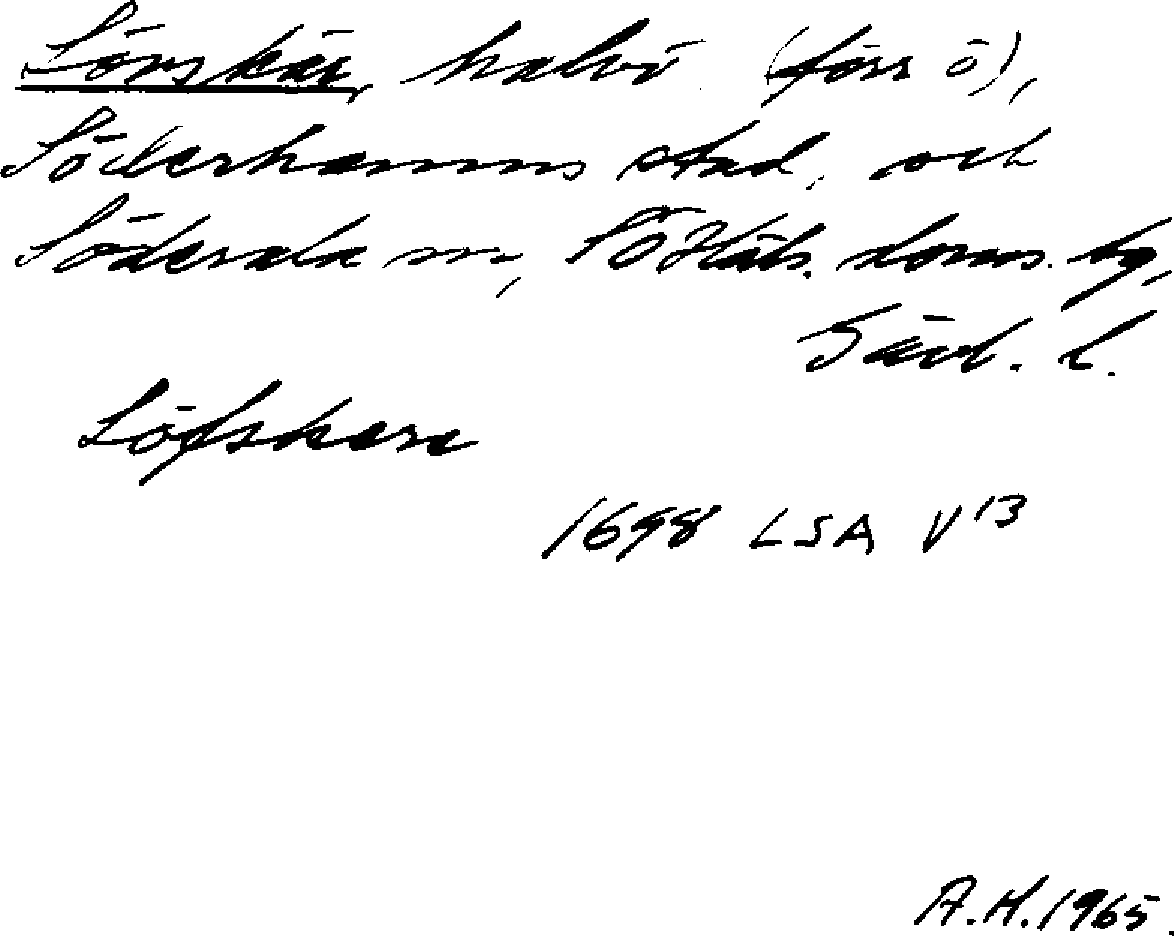 Lövskär, halvö (förr ö),
Söderhamns stad, och
Söderala sn, SöHäls. doms. tg,
Gävl. l.
Löfskere
1698 LSA V13
A.H. 1965.